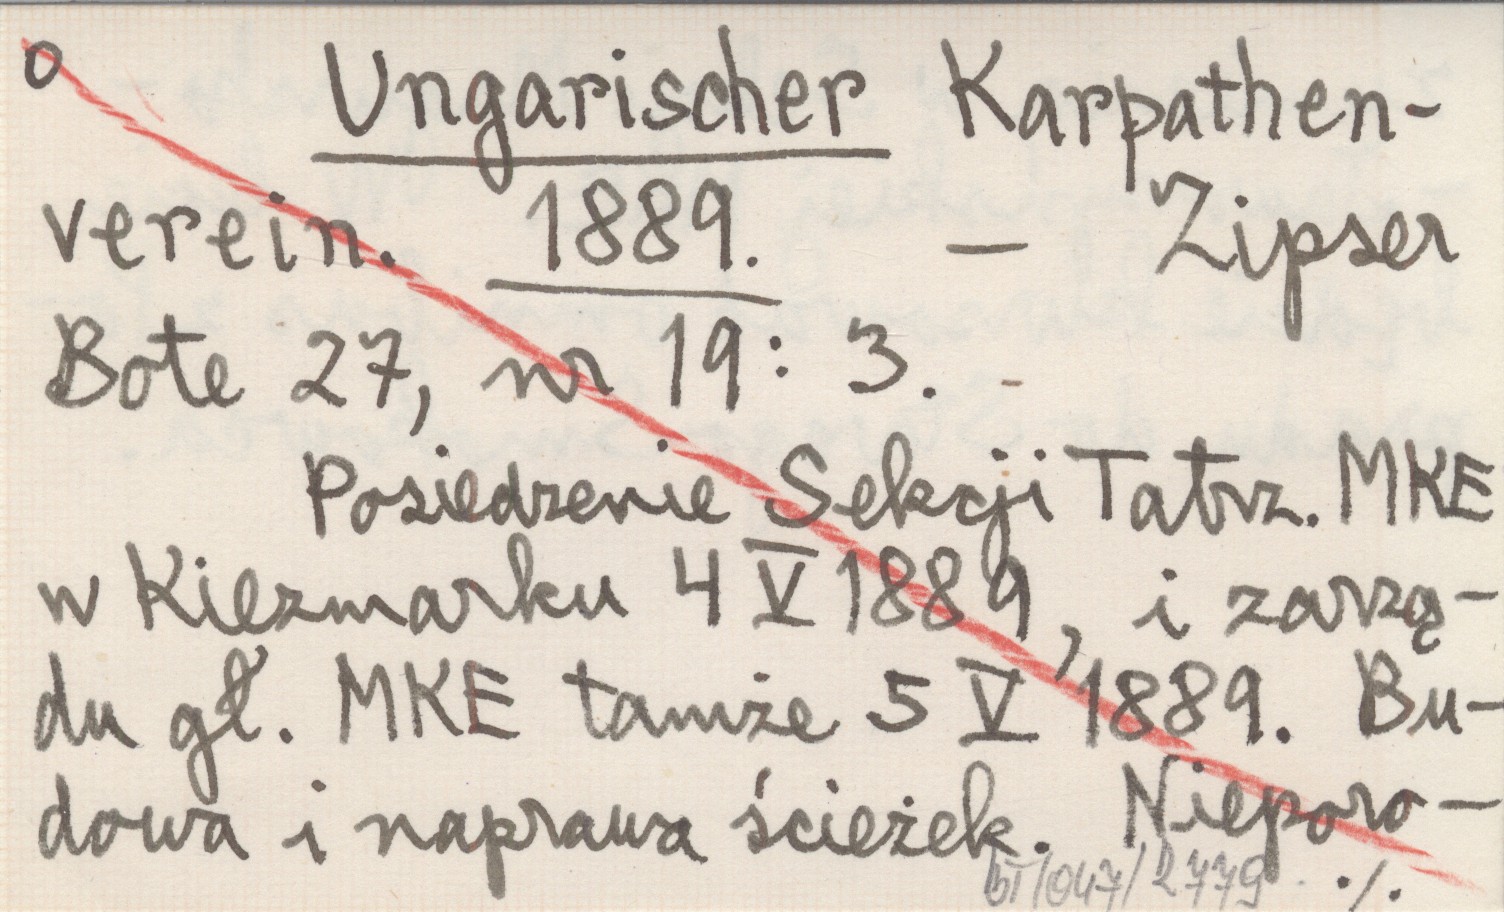 o Ungarischer Karpathen-
verein. 1889. – Zipser
Bote 27, nr 19: 3. -
Posiedzenie Sekcji Tatrz. MKE
w Kiezmarku 4 V 1889, i zarzą-
du gł. MKE tamże 5 V 1889. Bu-
dowa i naprawa ścieżek. Nieporo-
BT/047/2779 ./.